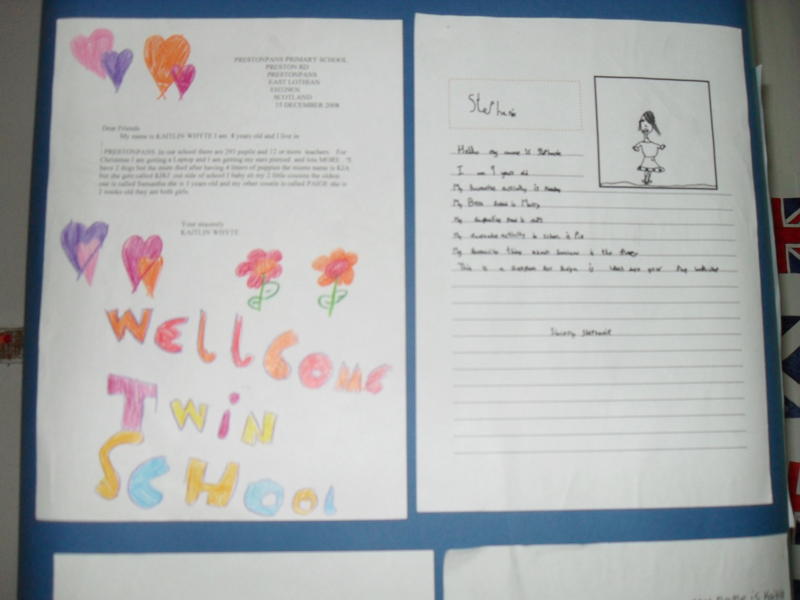 PRESTONPANS PRIMARY SCHOOL
PRESTON RD
PRESTONPANS
EAST LOTHIAN
SCOTLAND
15 DECEMBER 2008
Dear Friends
My name is KAITLIN WHYTE I am 8 years old and I live in
PRESTONPANS. In our school there are 293 pupils and 12 or more teachers. For
Christmas I am getting a Laptop and I am getting my ears pierced and lots MORE. I
have 2 dogs but the mum died after having 4 litters of puppies the mums name is KIA
but she gets called KIKI out side of school I baby sit my 2 little cousins the oldest
one is called Samantha she is 3 years old and my other cousin is called PAIGE she is
2 weeks old they are both girls.
Your sincerely
KAITLIN WHYTE
WELLCOME
TWIN
SCHOOL
Stephanie
Hello my name is Stephanie
I am 9 years old
My favourite activity is
My Best friend is
My favourite food is
My favourite activity in school is P.E
My favourite thing about is the
This is a question for you is what are your
Sincerely Stephanie